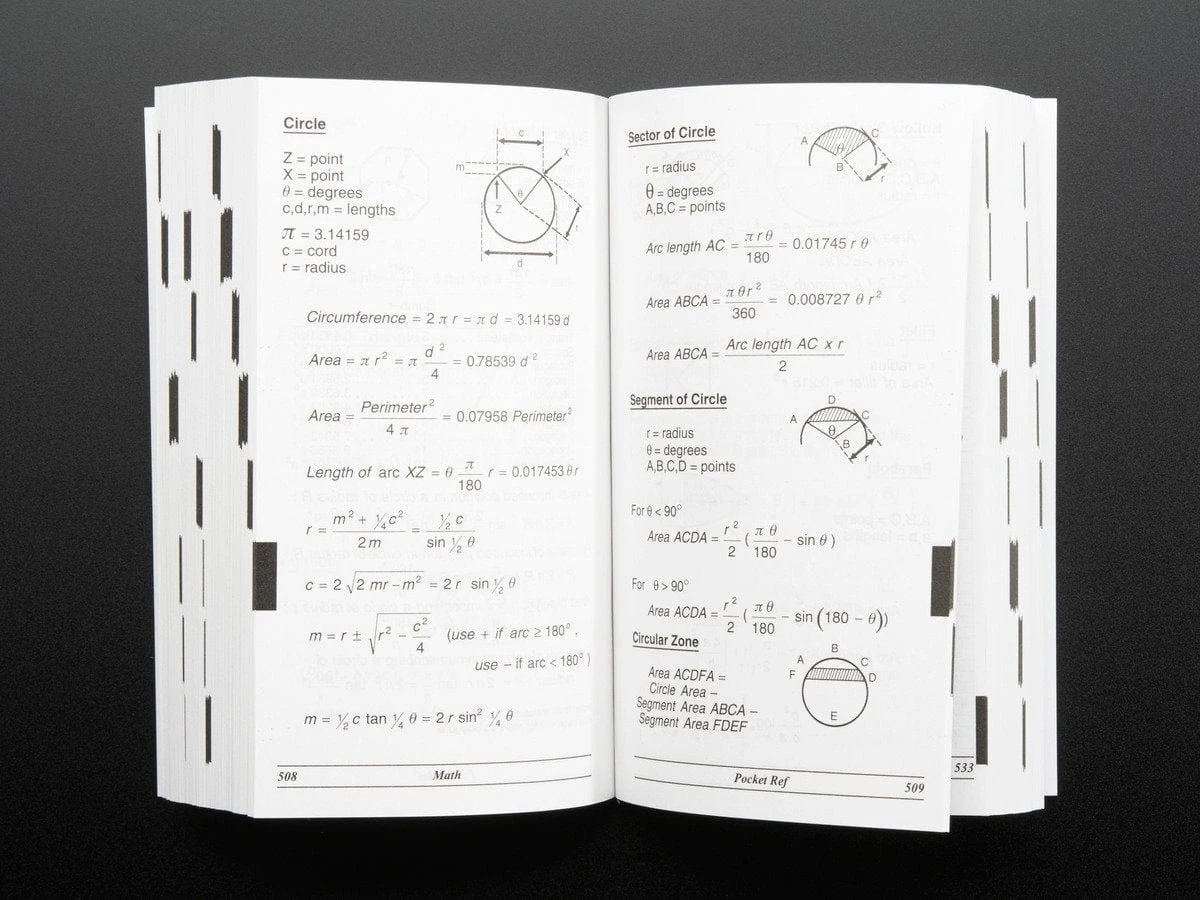 Circle
Z = point
X = point
θ = degrees
c,d,r,m = lengths
π = 3.14159
c = cord
r = radius
c
m
X
θ
Z
r
d
Circumference = 2 π r = π d = 3.14159 d
Area = π r² = π d²/4 = 0.78539 d²
Area = Perimeter²/4 π = 0.07958 Perimeter²
Length of arc XZ = θ π/180 r = 0.017453 θ r
r = m² + ¼c²/2 m = ½ c/sin ½ θ
c = 2 √2 mr – m² = 2 r sin ½ θ
m = r ± √r² – c²/4 (use + if arc ≥ 180°,
use – if arc < 180°)
m = ½ c tan ¼ θ = 2 r sin² ¼ θ
508 Math
Sector of Circle
r = radius
θ = degrees
A,B,C = points
A
C
θ
B
r
Arc length AC = π r θ/180 = 0.01745 r θ
Area ABCA = π θ r²/360 = 0.008727 θ r²
Area ABCA = Arc length AC x r/2
Segment of Circle
r = radius
θ = degrees
A,B,C,D = points
D
A
C
θ
B
r
For θ < 90°
Area ACDA = r²/2 (π θ/180 – sin θ)
For θ > 90°
Area ACDA = r²/2 (π θ/180 – sin (180 – θ))
Circular Zone
Area ACDFA =
Circle Area –
Segment Area ABCA –
Segment Area FDEF
B
A
C
F
D
E
Pocket Ref 509
533